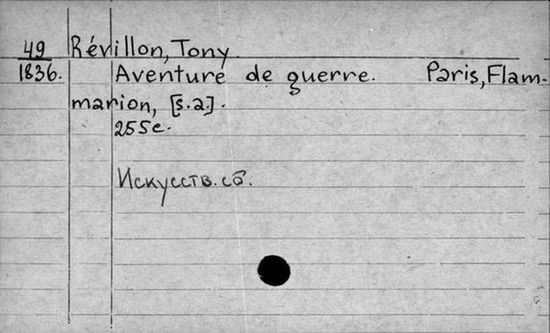 49 Révillon, Tony
1836. Aventure de guerre. Paris, Flam-
marion, [s.a.].
255c.
Искусств. сб.